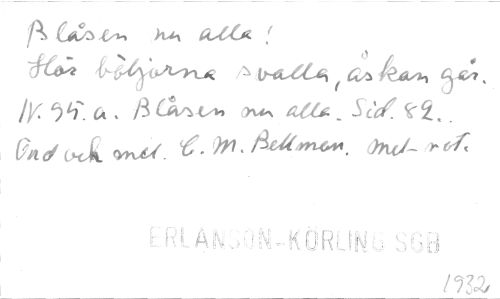 Blåsen nu alla!
Hör böljorna svalla, åskan går.
N. 95. a. Blåsen nu alla. Sid. 82.
Ord och mel. C. M. Bellman. Mel-not.
ERLANSON-KÖRLING SGB
1932